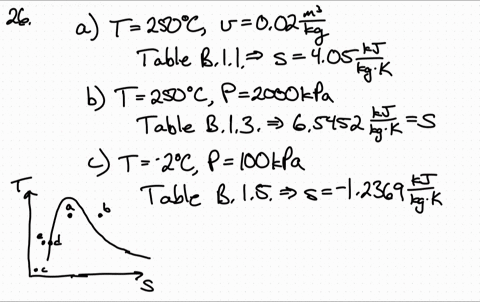 26.
a) T = 250°C, v = 0.02 m³/kg
Table B.1.1. ⇒ s = 4.05 kJ/kg·K
b) T = 250°C, P = 2000 kPa
Table B.1.3. ⇒ 6.5452 kJ/kg·K = s
c) T = -2°C, P = 100 kPa
Table B.1.5. ⇒ s = -1.2369 kJ/kg·K
T
a
b
e
d
c
s